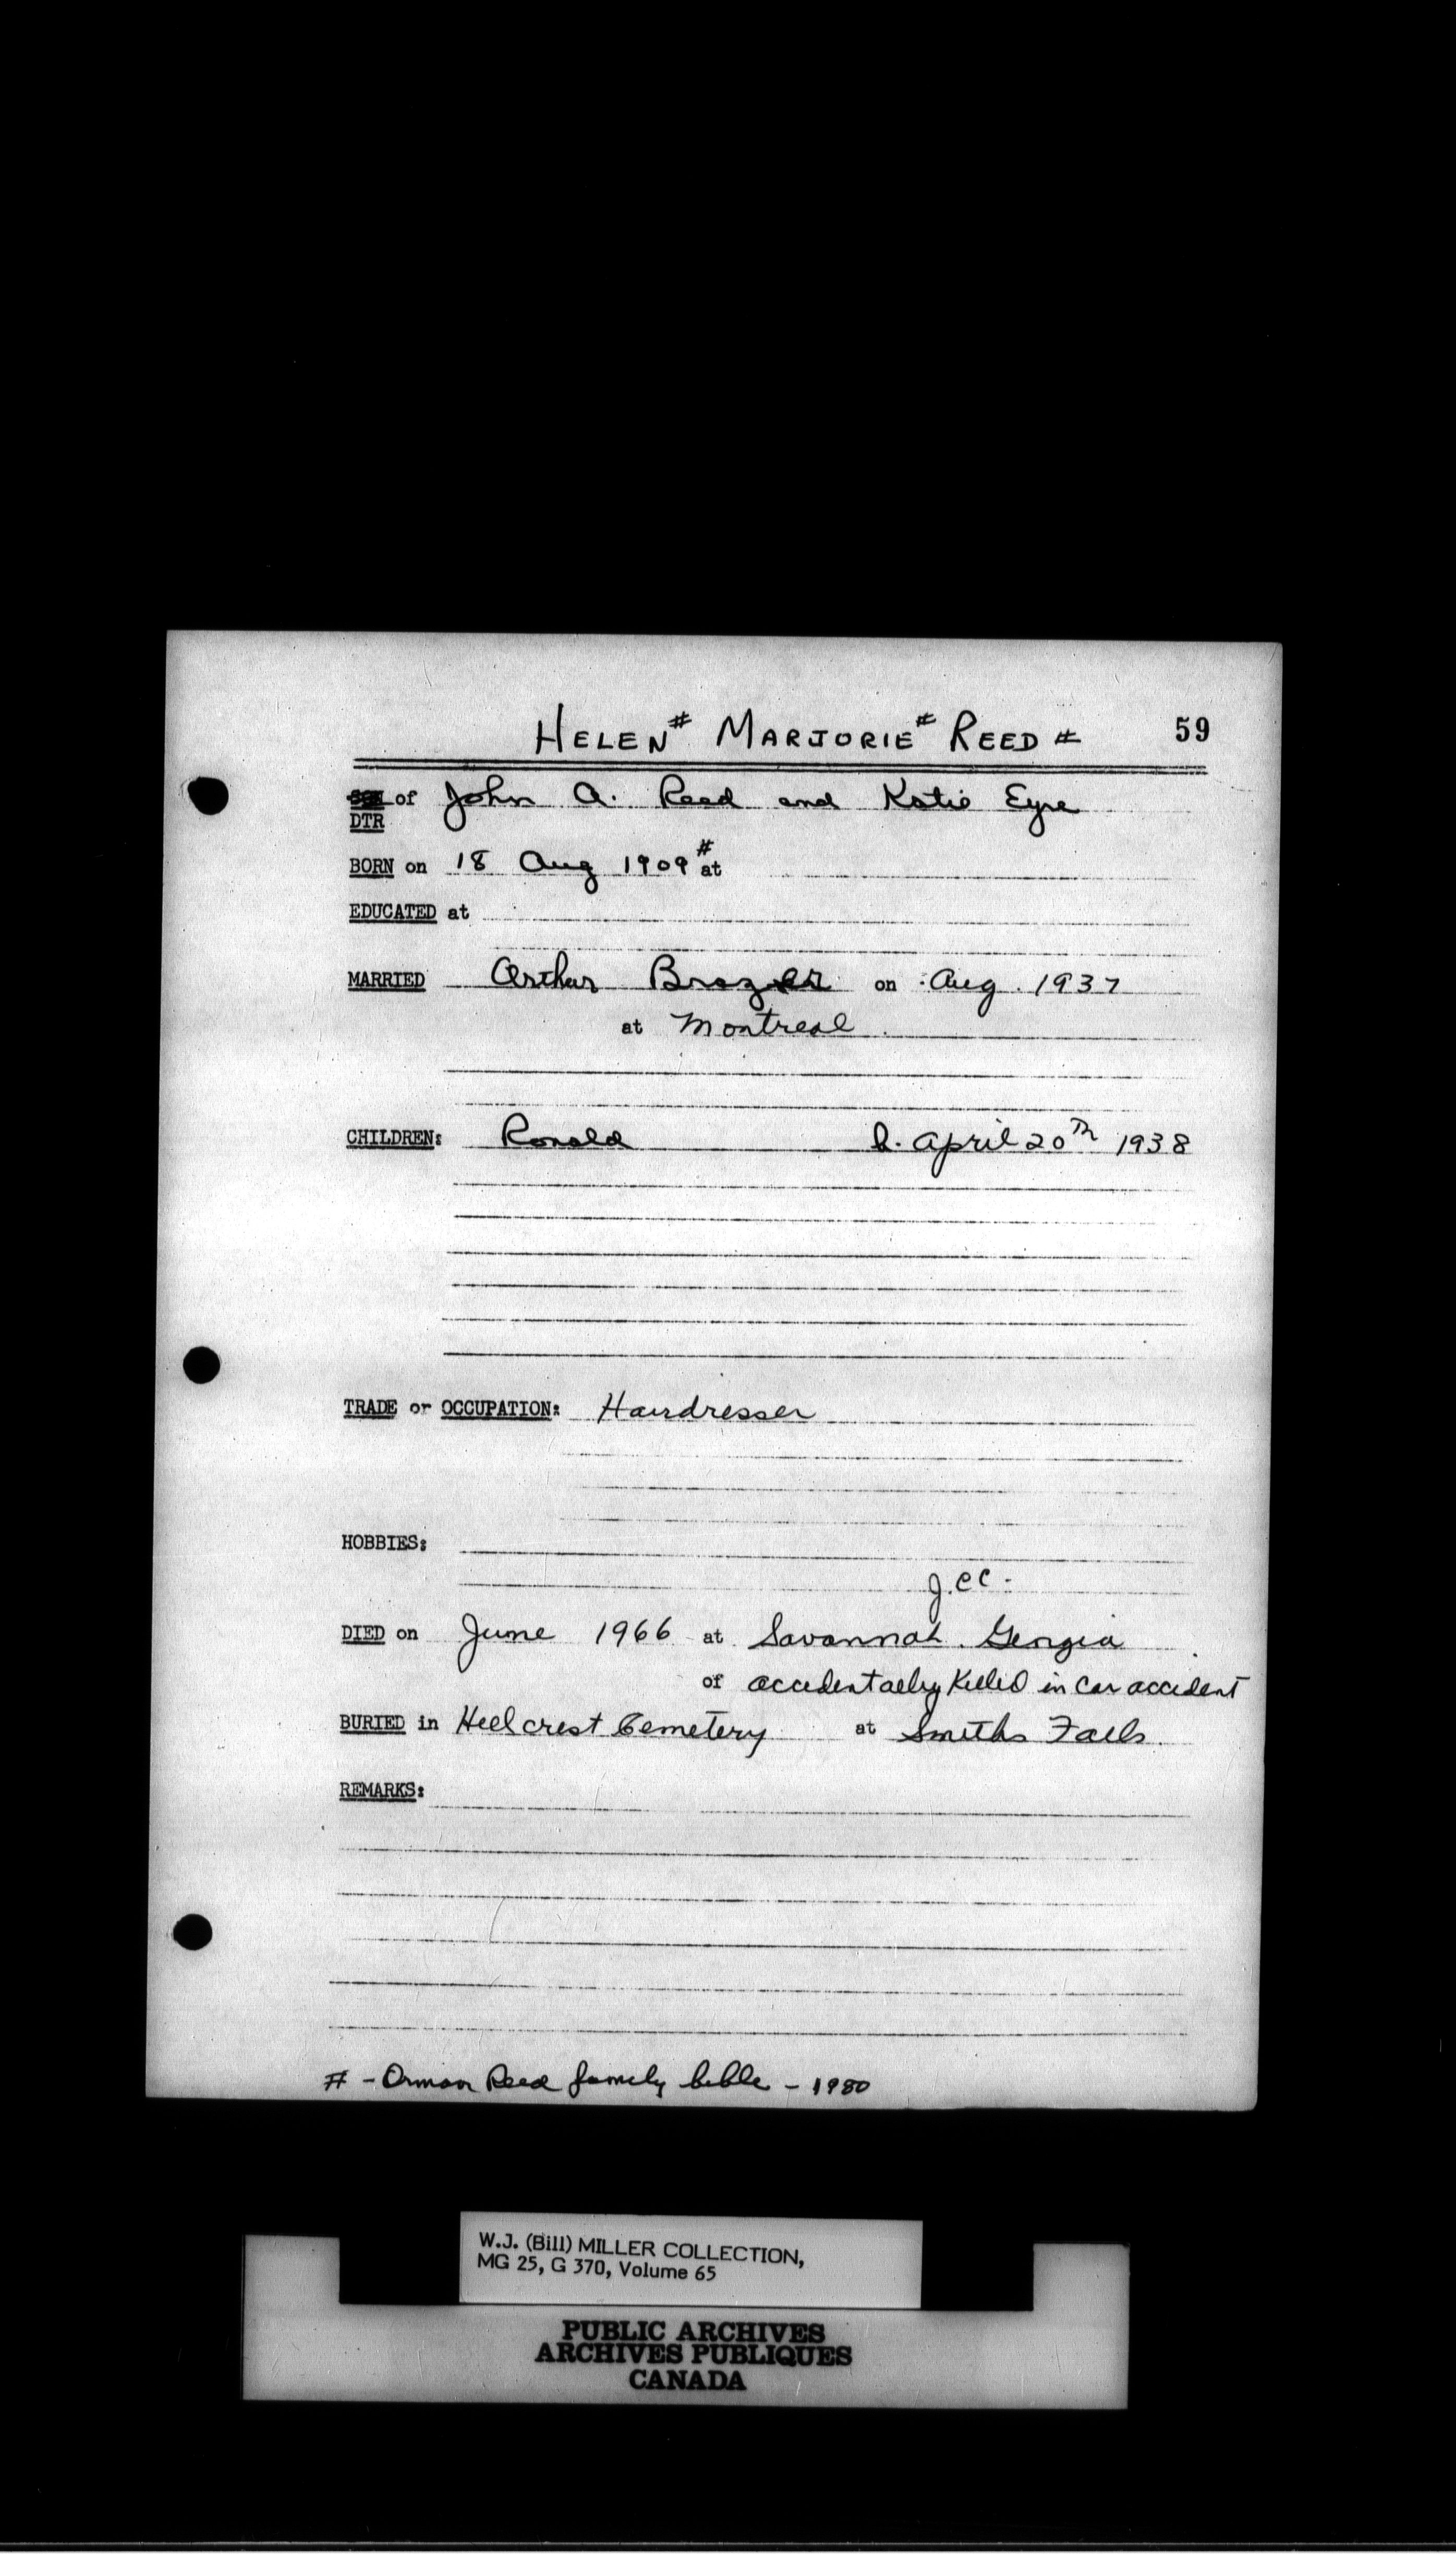 HELEN# MARJORIE# REED # 59
of John A. Reed and Katie Eyre
DTR
BORN on 18 Aug 1909# at
EDUCATED at
MARRIED Arthur Brazer on Aug. 1937
at Montreal.
CHILDREN: Ronald b. April 20th 1938
TRADE or OCCUPATION: Hairdresser
HOBBIES:
J.CC.
DIED on June 1966 at Savannah. Georgia
of accidentally Killed in Car accident
BURIED in Hillcrest Cemetery at Smiths Falls.
REMARKS:
# - Orman Reed family bible - 1980
W.J. (Bill) MILLER COLLECTION,
MG 25, G 370, Volume 65
PUBLIC ARCHIVES
ARCHIVES PUBLIQUES
CANADA